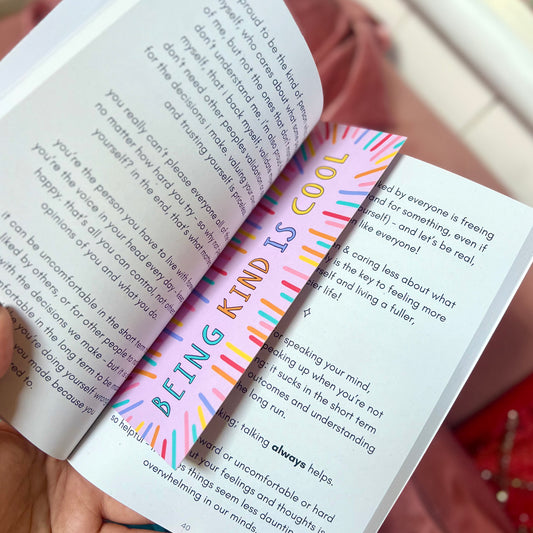 proud to be the kind of person
myself, who cares about what some
of me, but not the ones that don't
don't understand me. i'm also proud
myself, that i back myself, validate
don't need other peoples validation
for the decisions i make. valuing your
and trusting yourself, is priceless
you really can't please everyone all of
no matter how hard you try - so why not
yourself? in the end, that's what matters
you're the person you have to live with forever
you're the voice in your head every day - keep
happy. that's all you can control, not others
opinions of you and what you do.
it can be uncomfortable in the short term
liked by others, or for other people to
with the decisions we make... but it
comfortable in the long term to be
you're doing yourself wrong
you made because you
to.
BEING KIND IS COOL
ked by everyone is freeing
and for something, even if
yourself) - and let's be real,
n like everyone!
& caring less about what
y is the key to feeling more
rself and living a fuller,
ier life!
or speaking your mind,
eaking up when you're not
ng: it sucks in the short term
outcomes and understanding
he long run.
king: talking always helps.
ward or uncomfortable or hard
ut your feelings and thoughts is
so helpful
s things seem less daunting
overwhelming in our minds.
40